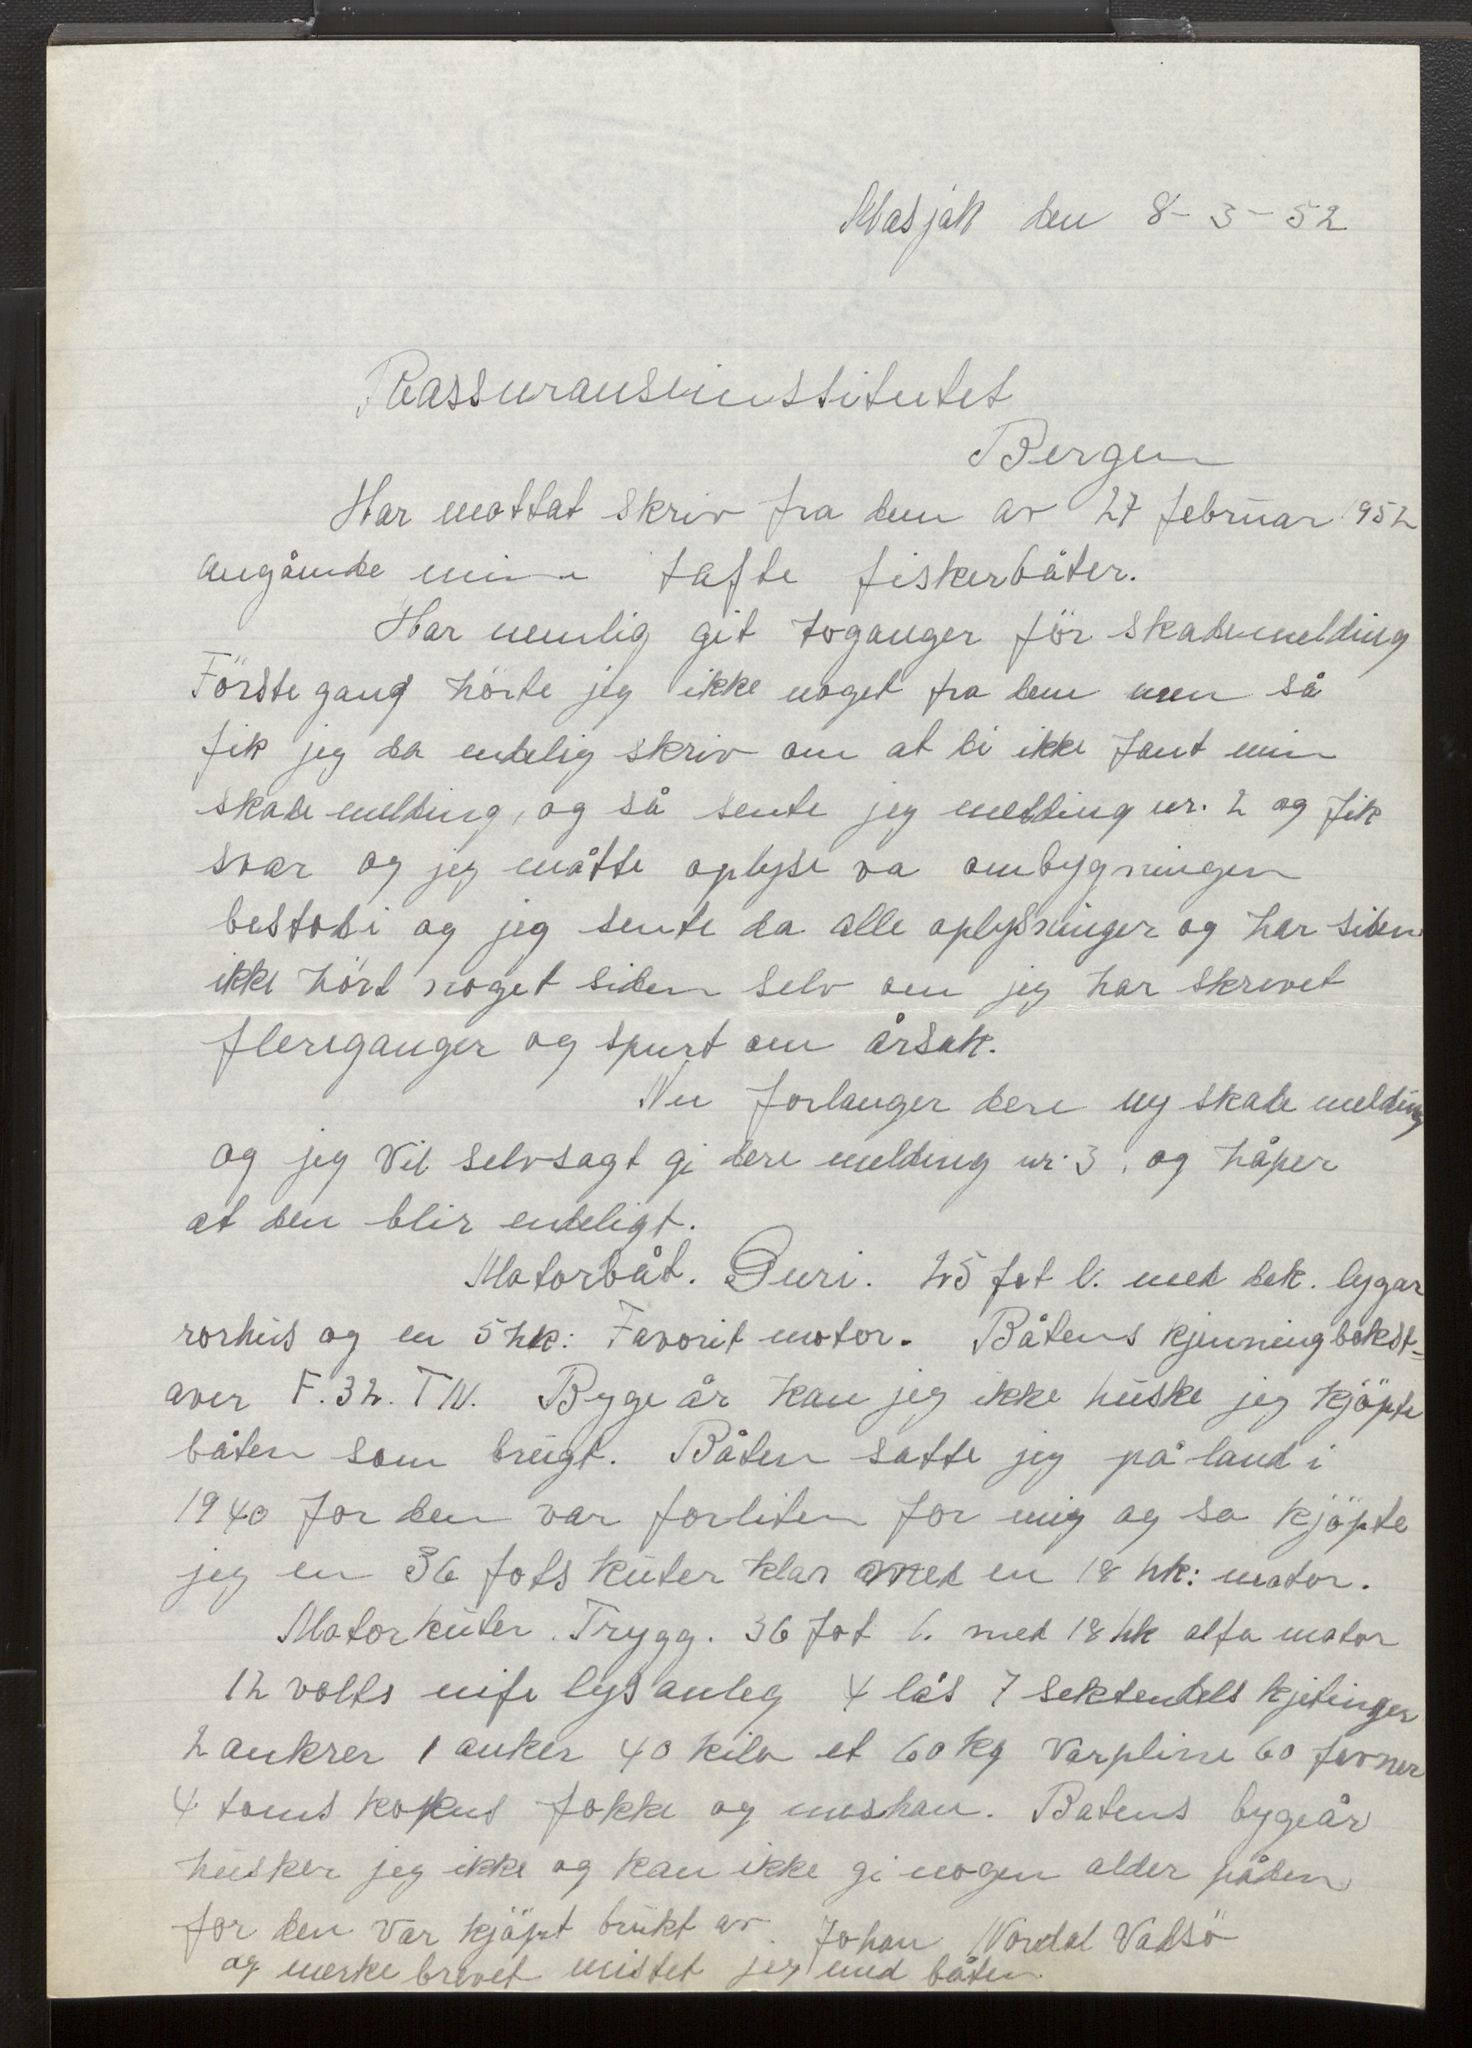 Masjåk den 8-3-52
Reassuranseinstitutet
Bergen
Har mottat skriv fra dem av 27 februar 1952
angående mine tafte fiskerbåter.
Har nemlig git toganger för skademelding
Förstegang hörte jeg ikke noget fra dem men så
fik jeg da endelig skriv om at di ikke fant min
skademelding, og så sente jeg melding nr. 2 og fik
svar og jeg måtte oplyse va ombygningen
bestod i og jeg sente da alle oplysninger og har siden
ikke hört noget siden selv om jeg har skrevet
flereganger og spurt om årsak.
Nu forlanger dere ny skade melding
og jeg vil selvsagt gi dere melding nr. 3, og håper
at den blir endeligt.
Motorbåt. Guri. 25 fot l. med dek. lygar
rorhus og en 5 hk: Favorit motor. Båtens kjenningbokst=
aver F.32.TN. Byge år kan jeg ikke huske jeg kjöpte
båten som brugt. Båten satte jeg på land i
1940 for den var forliten for mig og so kjöpte
jeg en 36 fots kuter klar med en 18 hk: motor.
Motorkuter. Trygg. 36 fot l. med 18 hk alfa motor
12 volts nife lysanleg 4 lås 7 sektendels kjetinger
2 ankrer 1 anker 40 kilo et 60 kg Varpline 60 favner
4 toms kokus fokke og meskan. Batens bygeår
husker jeg ikke og kan ikke gi nogen alder påden
for den var kjöpt brukt av Johan Nordal Vadsö
og merkebrevet mistet jeg med båten